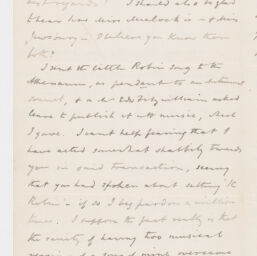 I should also be glad
to hear how Miss Mulock is — & Miss
Jewsbury — I believe you know them
both?
I sent the little Robin song to the
Athenaeum, as pendant to an autumnal
sonnet, & a Mr Edw Fitzwilliam asked
leave to publish it with music, which
I gave. I can't help fearing that I
have acted somewhat shabbily towards
you in said transaction, seeing
that you had spoken about setting "C
Robin" – if so I beg pardon a million
times. I suppose the fact really is that
the vanity of having two musical